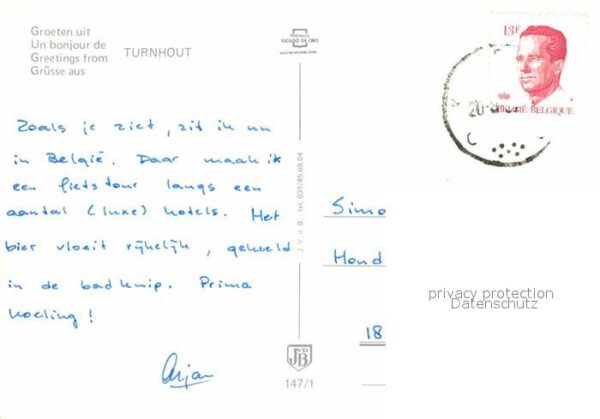 Groeten uit
Un bonjour de
Greetings from
Grüsse aus
TURNHOUT
POSTALES
ESCUDO DE ORO
13F
BELGIË-BELGIQUE
20
Zoals je ziet, zit ik nu
in België. Daar maak ik
een fietstour langs een
aantal (luxe) hotels. Het
bier vloeit rijkelijk, gekoeld
in de badkuip. Prima
koeling!
Arjan
J.V.d.B. tel. 031/45.68.04
JB
147/1
Simo
Hond
18
privacy protection
Datenschutz